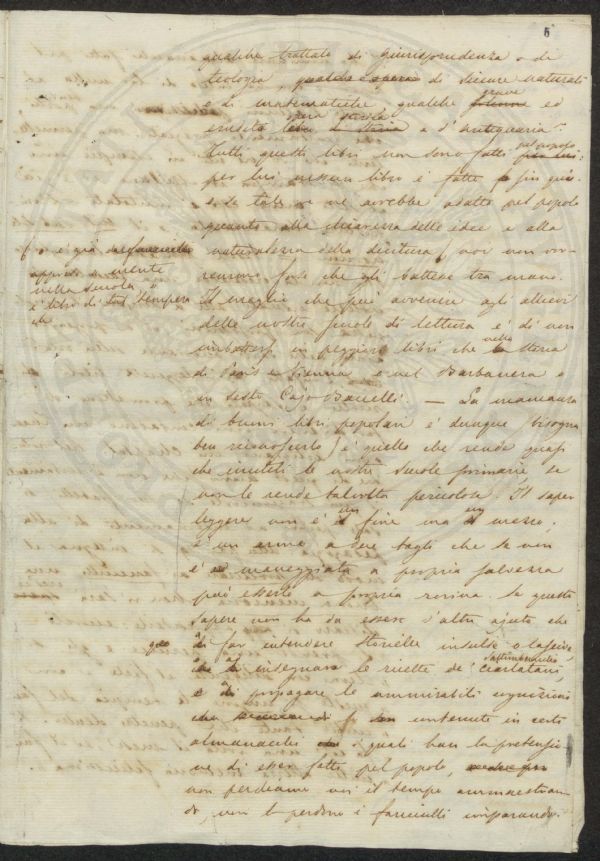 5
qualche trattato di giurisprudenza o di
teologia, qualche opera di scienze naturali
e di matematiche qualche grave ed
erudita opera storica e d'antiquaria.
Tutti questi libri non sono fatti pel popolo
per lui nessun libro è fatto fin qui:
e se tale ve ne avrebbe adatto pel popolo
quanto alla chiarezza delle idee e alla
naturalezza della dicitura, voi non
fate che gli battesse tra mano.
Il meglio che può avvenire agli allievi
delle nostre scuole di lettura è di non
imbattersi in peggiori libri che nella storia
di Paris e Vienna o nel Barbanera o
in Sesto Cajo Baccelli. — La mancanza
di buoni libri popolari è dunque (bisogna
ben riconoscerlo) è quello che rende quasi
che inutili le nostre scuole primarie, se
non le rende talvolta pericolose. Il saper
leggere non è un fine ma un mezzo.
è un arme a due tagli che se non
è maneggiata a propria salvezza
può esserlo a propria rovina. Se questo
sapere non ha da essere d'altro ajuto che
di far intendere storielle insulse o lascive,
insegnare le ricette de' ciarlatani,
e di propagare le ammirabili cognizioni
contenute in certi
almanacchi i quali han la pretensio
ne di esser fatti pel popolo,
non perdiamo noi il tempo ammaestran
do, non lo perdono i fanciulli imparando.
è già
appreso a mente
nella scuola, o
è libro di tal tempera
che